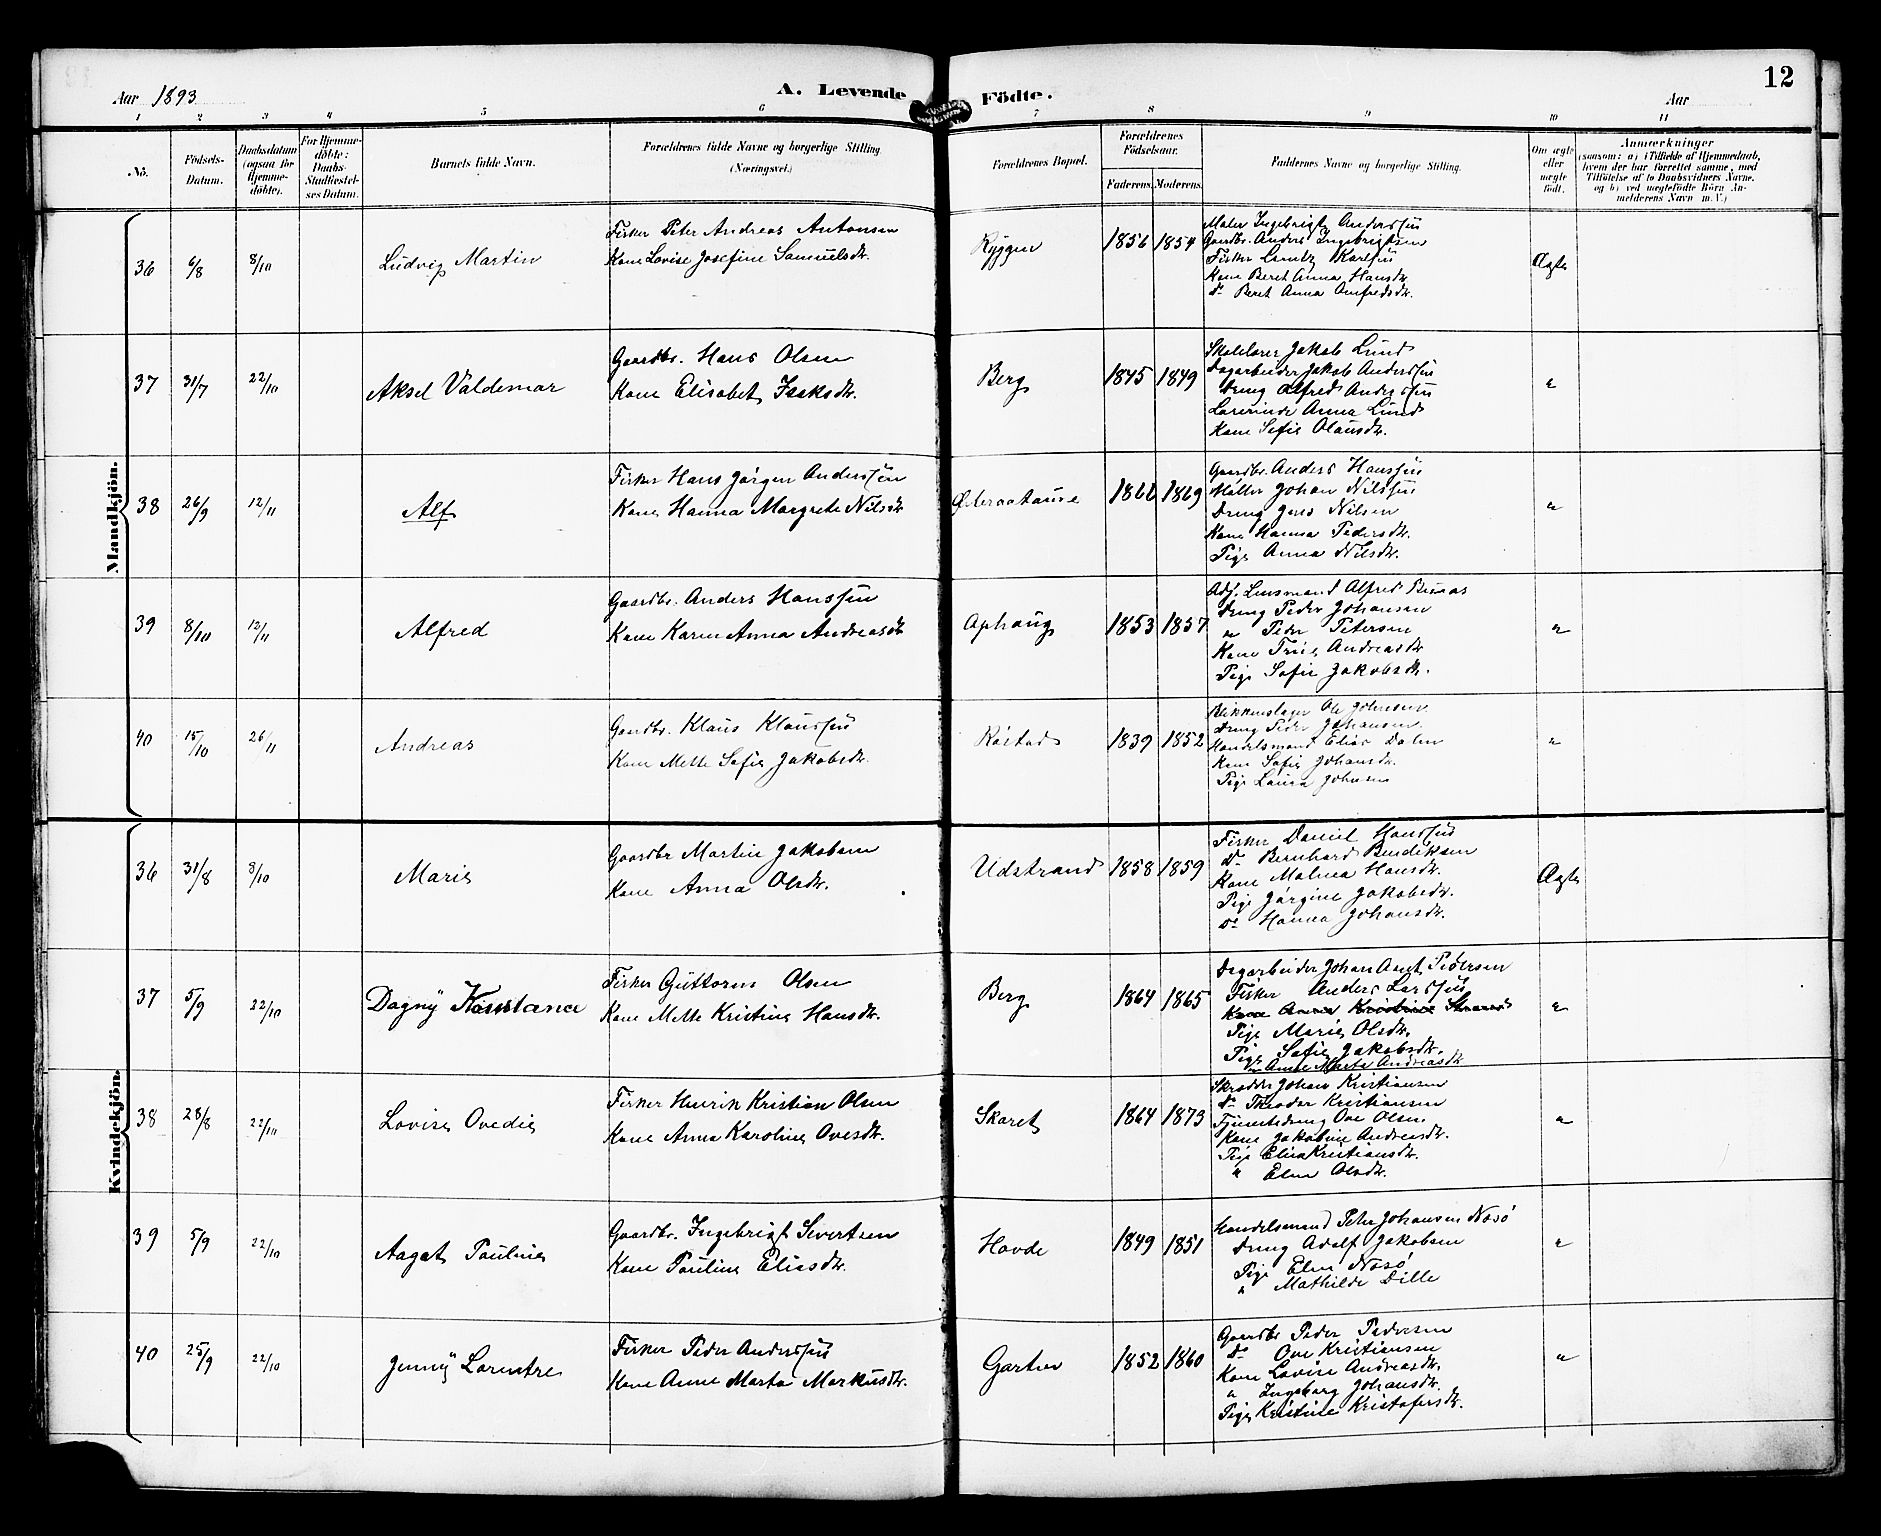 12
Aar 1893
A. Levende
Födte.
Aar
1 2 3 4 5 6 7 8 9 10 11
No.
Födsels-
Datum.
Daabsdatum
(ogsaa for
Hjemme-
döbte).
For Hjemme-
döbte:
Daabs-
Stadfæstel-
ses Datum.
Barnets fulde Navn.
Forældrenes fulde Navne og borgerlige Stilling
(Næringsvei.)
Forældrenes Bopæl.
Forældrenes
Födselsaar.
Faderens. Moderens.
Faddernes Navne og borgerlige Stilling.
Om ægte
eller
uægte
født.
Anmærkninger
(saasom: a) i Tilfælde af Hjemmedaab,
hvem der har forrettet samme, med
Tilföielse af to Daabsvidners Navne.
og b) ved uægtefödte Börn An-
melderens Navn m. V.)
Mandkjön.
36 6/8 8/10 Ludvig Martin
Fisker Peter Andreas Antonsen
Kone Lovise Josefine Samuelsdtr.
Ryggen 1856 1854
Maler Ingebrigt Anderssen
Gaardbr. Anders Ingebrigtsen
Fisker Karlsen
Kone Beret Anna Hansdtr.
Do Beret Anna Amfredsdtr.
Ægte
37 31/7 22/10 Aksel Valdemar
Gaardbr. Hans Olsen
Kone Elisabet Isaksdtr.
Berg 1845 1849
Skolelærer Jakob Lund
Dagarbeider Jakob Anderssen
Dreng Alfred Anderssen
Lærerinde Anna Lund
Kone Sofie Olausdtr.
"
38 26/9 12/11 Alf
Fisker Hans Jørgen Anderssen
Kone Hanna Margrete Nilsdtr
1869
Gaardbr. Anders Hanssen
Møller Johan Nilssen
Dreng Jens Nilsen
Kone Hanna Pedersdtr.
Pige Anna Nilsdtr.
"
39 8/10 12/11 Alfred
Gaardbr. Anders Hanssen
Kone Karen Anna Andreasdtr
Ophaug 1853 1857
Adj. Lensmand Alfred
Dreng Peder Johansen
" Peder Petersen
Kone Andreasdtr
Pige Sofie Jakobsdtr.
"
40 15/10 26/11 Andreas
Gaardbr. Klaus Klaussen
Kone Mette Sofie Jakobsdtr.
Røstad 1839 1852
Blikkenslager Ole Johnsen
Dreng Peder Johansen
Handelsmand Elias Dalen
Kone Sofie Johansdtr.
Pige Laura Johnsen
"
Kvindekjön.
36 31/8 8/10 Marie
Gaardbr Martin Jakobsen
Kone Anna Olsdtr.
Udstrand 1858 1859
Fisker Daniel Hanssen
Do Bernhard Bendiksen
Kone Malena Hansdtr.
Pige Jørgine Jakobsdtr.
Do Hanna Johansdtr.
Ægte
37 5/9 22/10 Dagny Konstance
Fisker Guttorm Olsen
Kone Mette Kristine Hansdtr.
Berg 1864 1865
Dagarbeider Johan Arnt Pedersen
Fisker Anders Larssen
Kone Anna Kristine Strand
Pige Marie Olsdtr.
Pige Sofie Jakobsdtr.
" Anne Marta Andreasdtr
"
38 28/8 22/10 Lovise Ovedie
Fisker Henrik Kristian Olsen
Kone Anna Karoline Ovesdtr.
Skaret 1864 1873
Skrædder Johan Kristiansen
Do Theodor Kristiansen
Tjenestedreng Ove Olsen
Kone Jakobine Andreasdtr.
Pige Elisa Kristiansdtr.
" Elen Olsdtr.
"
39 5/9 22/10 Aagat Pauline
Gaardbr. Ingebrigt Sivertsen
Kone Pauline Eliasdtr.
Hovde 1849 1851
Handelsmand Peter Johansen Nesø
Dreng Adolf Jakobsen
Pige Elen Nesø
" Mathilde Dille
"
40 25/9 22/10 Jenny Lorentse
Fisker Peder Anderssen
Kone Anne Marta Markusdtr.
Garten 1852 1860
Gaardbr Peder Pedersen
Do Ove Kristiansen
Kone Lovise Andreasdtr.
" Ingeborg Johansdtr.
Pige Kristine Kristofersdtr.
"